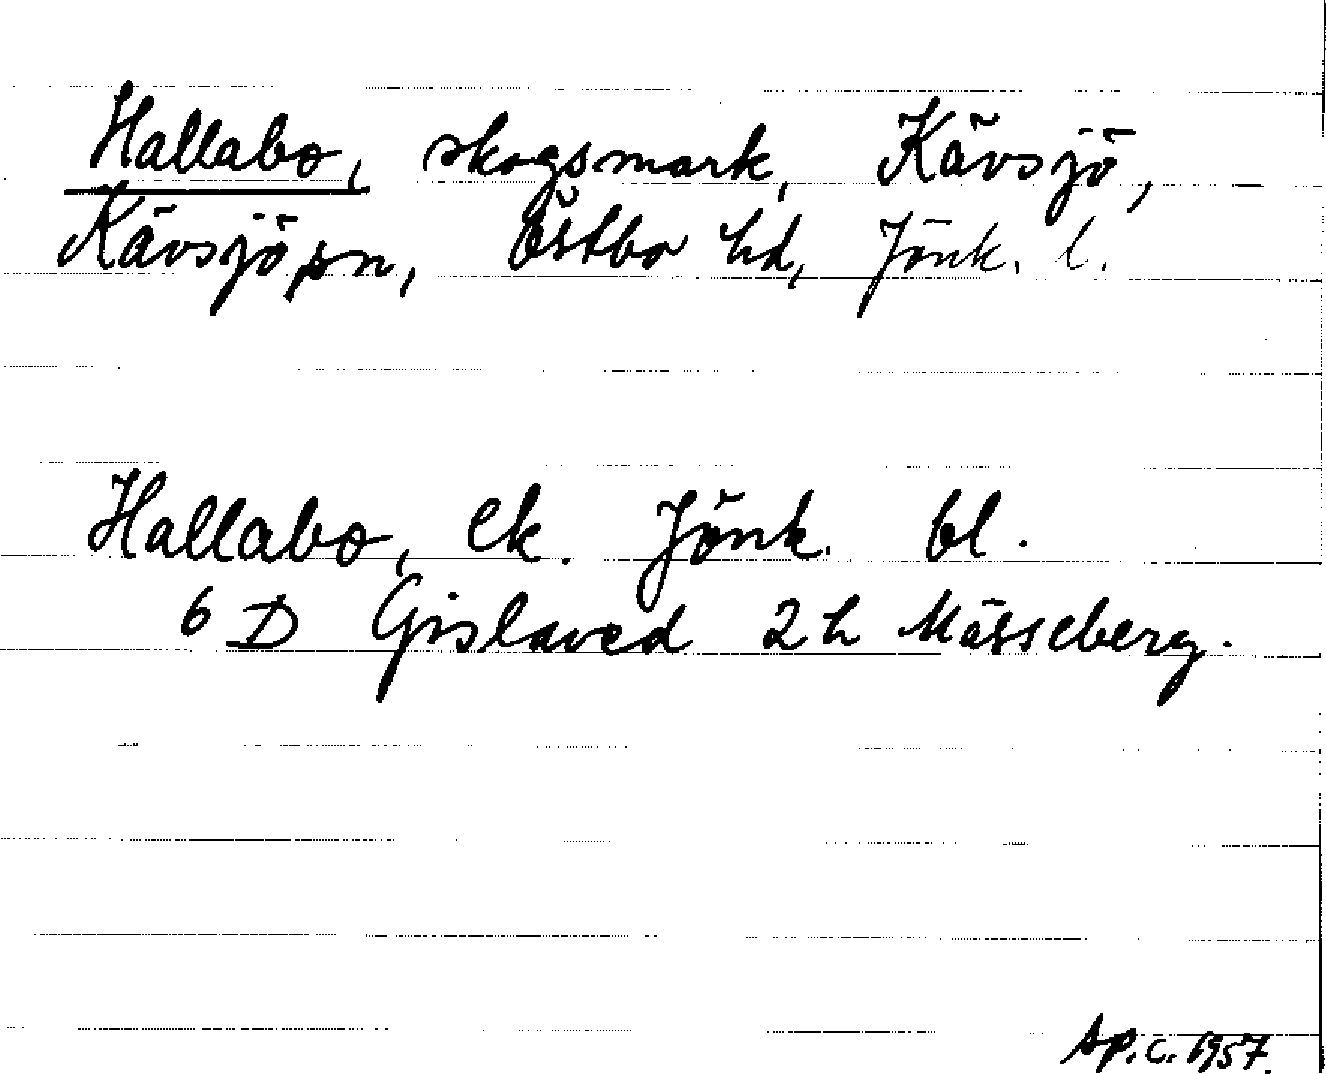 Hallabo, skogsmark, Kävsjö,
Kävsjö sn, Östbo hd, Jönk. l.
Hallabo, ek. Jönk. bl.
6 D Gislaved 2 h Mässeberg.
Ap. c. 1957.